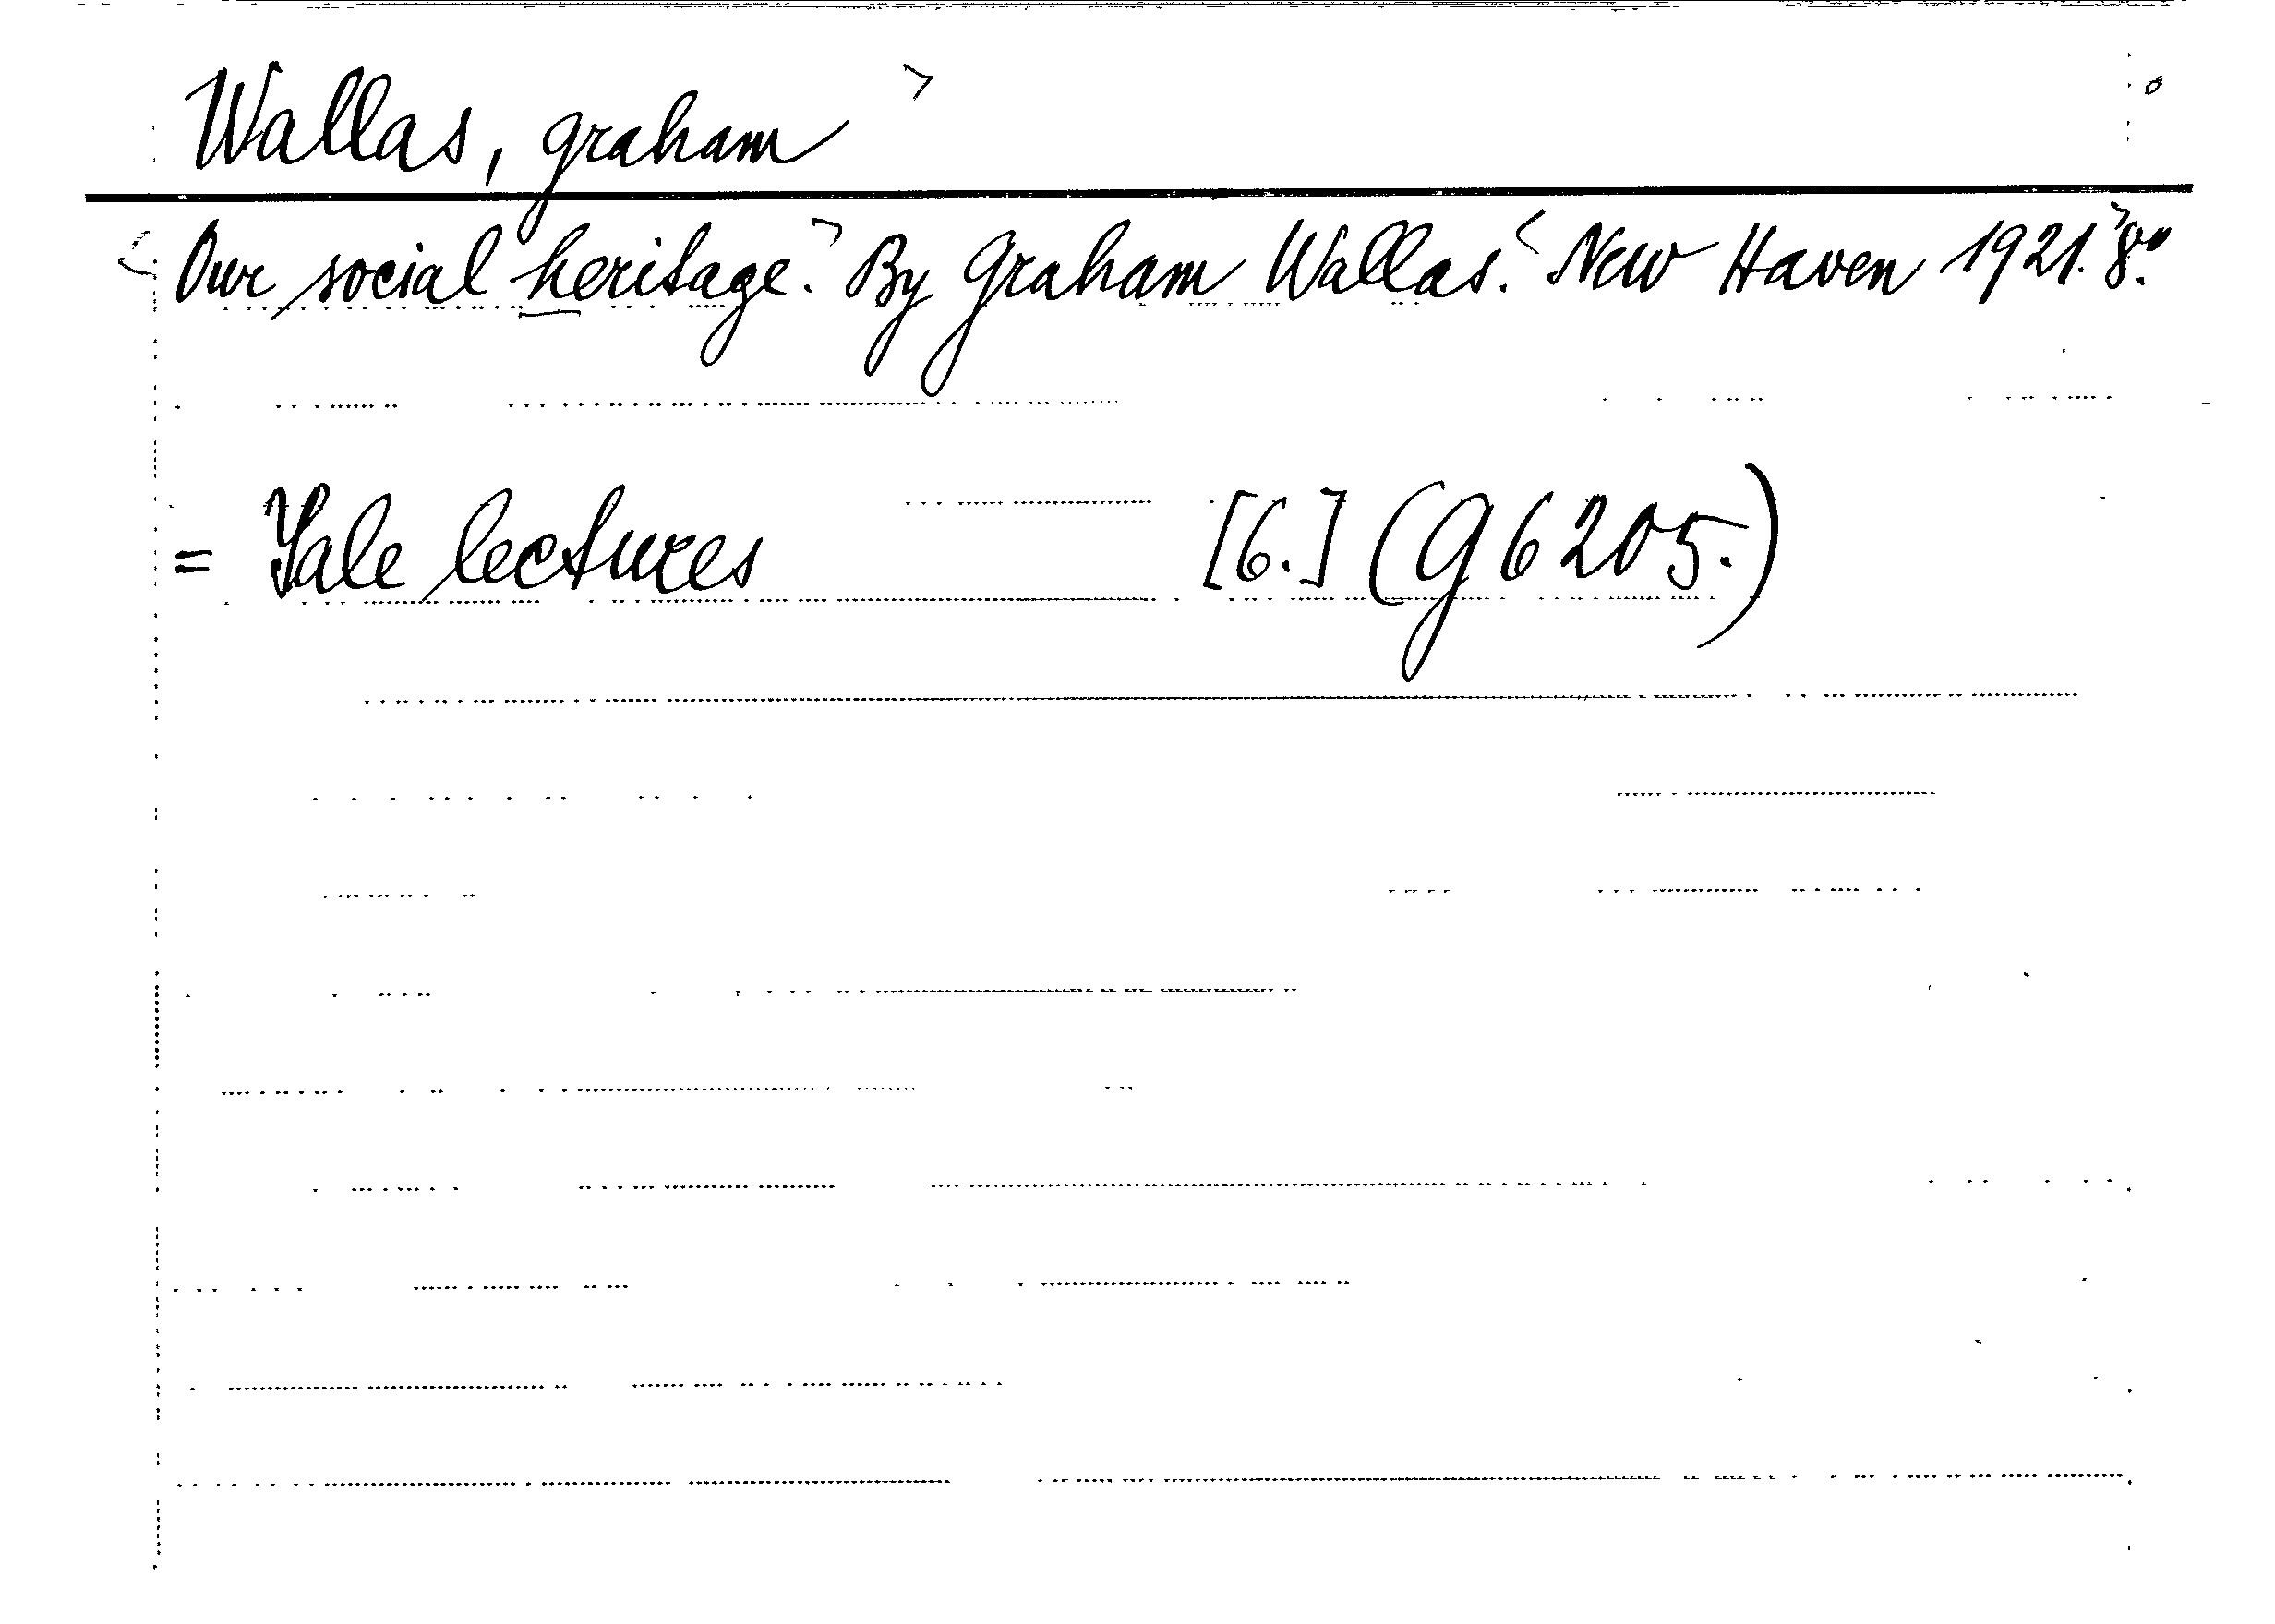 Wallas, Graham
Our social heritage. By Graham Wallas. New Haven 1921. 8º.
= Yale lectures [6.] (G 6205.)